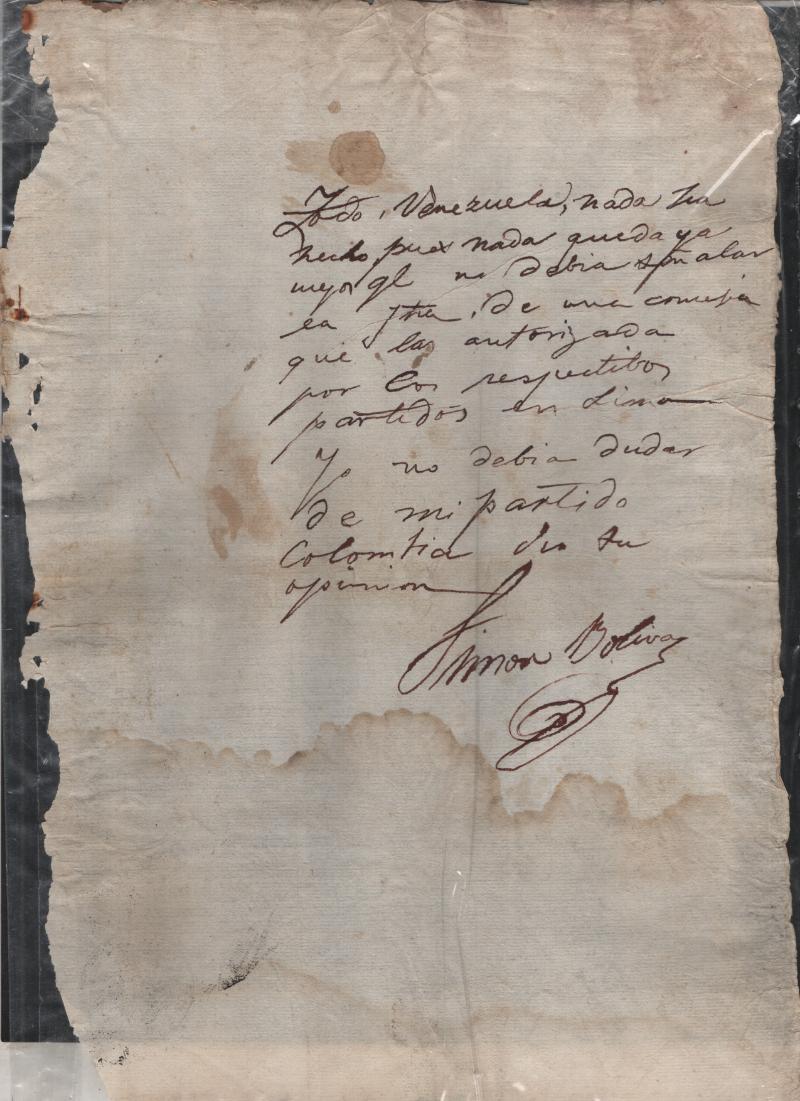 Todo, Venezuela, nada ha
hecho pues nada queda ya
mejor ql no debia señalar
ea de una comisia
que las autorizada
por los respectibos
partidos en Lima
Yo no debia dudar
de mi partido
Colombia su
opinion
Simon Bolivar